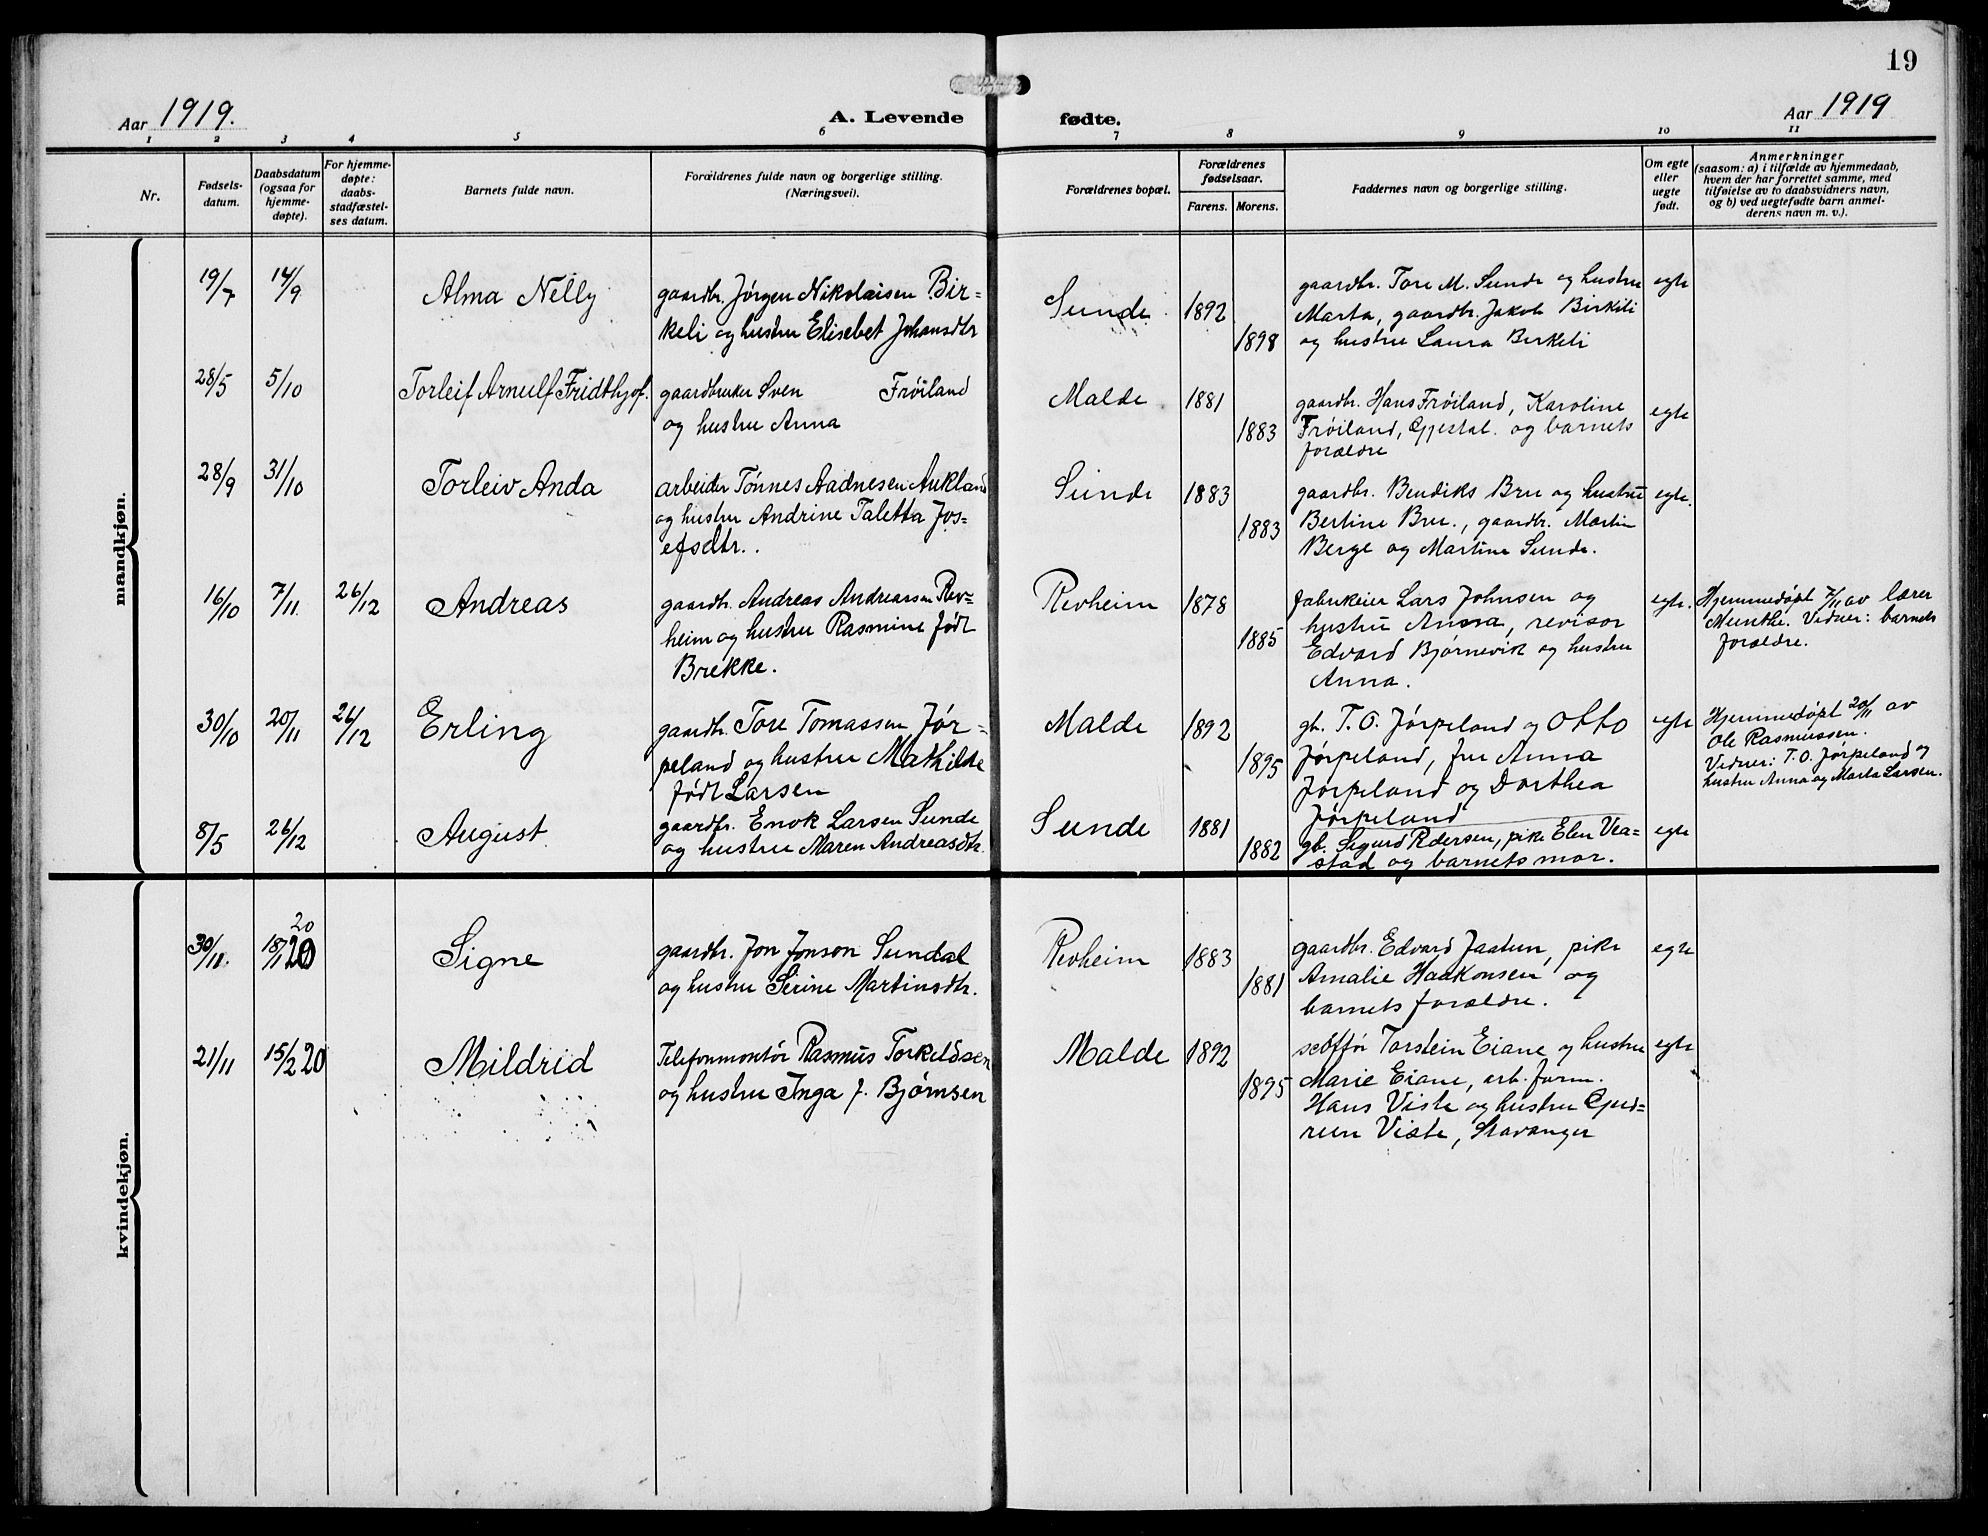 19
Aar 1919.
A. Levende fødte.
Aar 1919
1 2 3 4 5 6 7 8 9 10 11
Nr.
Fødsels-
datum.
Daabsdatum
(ogsaa for
hjemme-
døpte).
For hjemme-
døpte:
daabs-
stadfæstel-
ses datum.
Barnets fulde navn.
Forældrenes fulde navn og borgerlige stilling.
(Næringsvei).
Forældrenes bopæl.
Forældrenes
fødselsaar.
Farens. Morens.
Faddernes navn og borgerlige stilling.
Om egte
eller
uegte
født.
Anmerkninger
(saasom: a) i tilfælde av hjemmedaab,
hvem der har forrettet samme, med
tilføielse av to daabsvidners navn,
og b) ved uegtefødte barn anmel-
derens navn m. v.).
mandkjøn.
19/7 14/9 Alma Nelly
gaardbr. Jørgen Nikolaisen Bir-
keli og hustru Elisebet Johansdtr
Sunde 1892
1898
gaardbr. Tore M. Sunde og hustru
Marta, gaardbr. Jakob Birkeli
og hustru Laura Birkeli
egte
28/5 5/10 Torleif Arnulf Fridthjof.
gaardbruker Sven Frøiland
og hustru Anna
Malde 1881
1883
gaardbr. Hans Frøiland, Karoline
Frøiland, Gjestal. og barnets
forældre
egte
28/9 31/10 Torleiv Anda
arbeider Tönnes Aadnesen Aukland
og hustru Andrine Taletta Jos-
efsdtr.
Sunde 1883
1883
gaardbr. Bendiks Bru og hustru
Bertine Bru., gaardbr. Martin
Berge og Martine Sunde.
egte.
16/10 7/11 26/12 Andreas
gaardbr. Andreas Andreassen Rev-
heim og hustru Rasmine født
Brekke.
Revheim 1878
1885
fabrikeier Lars Johnsen og
hustru Anna, revisor
Edvard Bjørnevik og hustru
Anna.
egte.
Hjemmedøpt 7/11 av lærer
Munthe. Vidner: barnets
forældre.
30/10 20/11 26/12 Erling
gaardbr. Tore Tomassen Jør-
peland og hustru Mathilde
født Larsen
Malde 1892
1895
gb. T. O. Jørpeland og Otto
Jørpeland, fru Anna
Jørpeland og Dorthea
Jørpeland
egte
Hjemmedøpt 20/11 av
Ole Rasmussen.
Vidner: T. O. Jørpeland og
hustru Anna og Marta Larsen.
8/5 26/12 August
gaardbr. Enok Larsen Sunde
og hustru Maren Andreasdtr.
Sunde 1881
1882
gb. Sigurd Pedersen, pike Elen Vea-
stad og barnets mor.
egte
kvindekjøn.
30/11. 18/1 20 20 Signe
gaardbr. Jon Jonson Sundal
og hustru Serine Martinsdtr.
Revheim 1883
1881
gaardbr. Edvard Jaatun, pike
Amalie Haakonsen og
barnets forældre.
egte
21/11 15/2 20 Mildrid
Telefonmontör Rasmus Torkeldsen
og hustru Inga f. Bjørnsen
Malde 1892
1895
scofför Torstein Eiane og hustru
Marie Eiane, arb. form.
Hans Viste og hustru Gud-
run Viste, Stavanger
egte